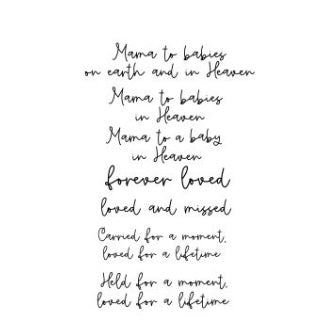 Mama to babies
on earth and in Heaven
Mama to babies
in Heaven
Mama to a baby
in Heaven
forever loved
loved and missed
Carried for a moment,
loved for a lifetime
Held for a moment,
loved for a lifetime